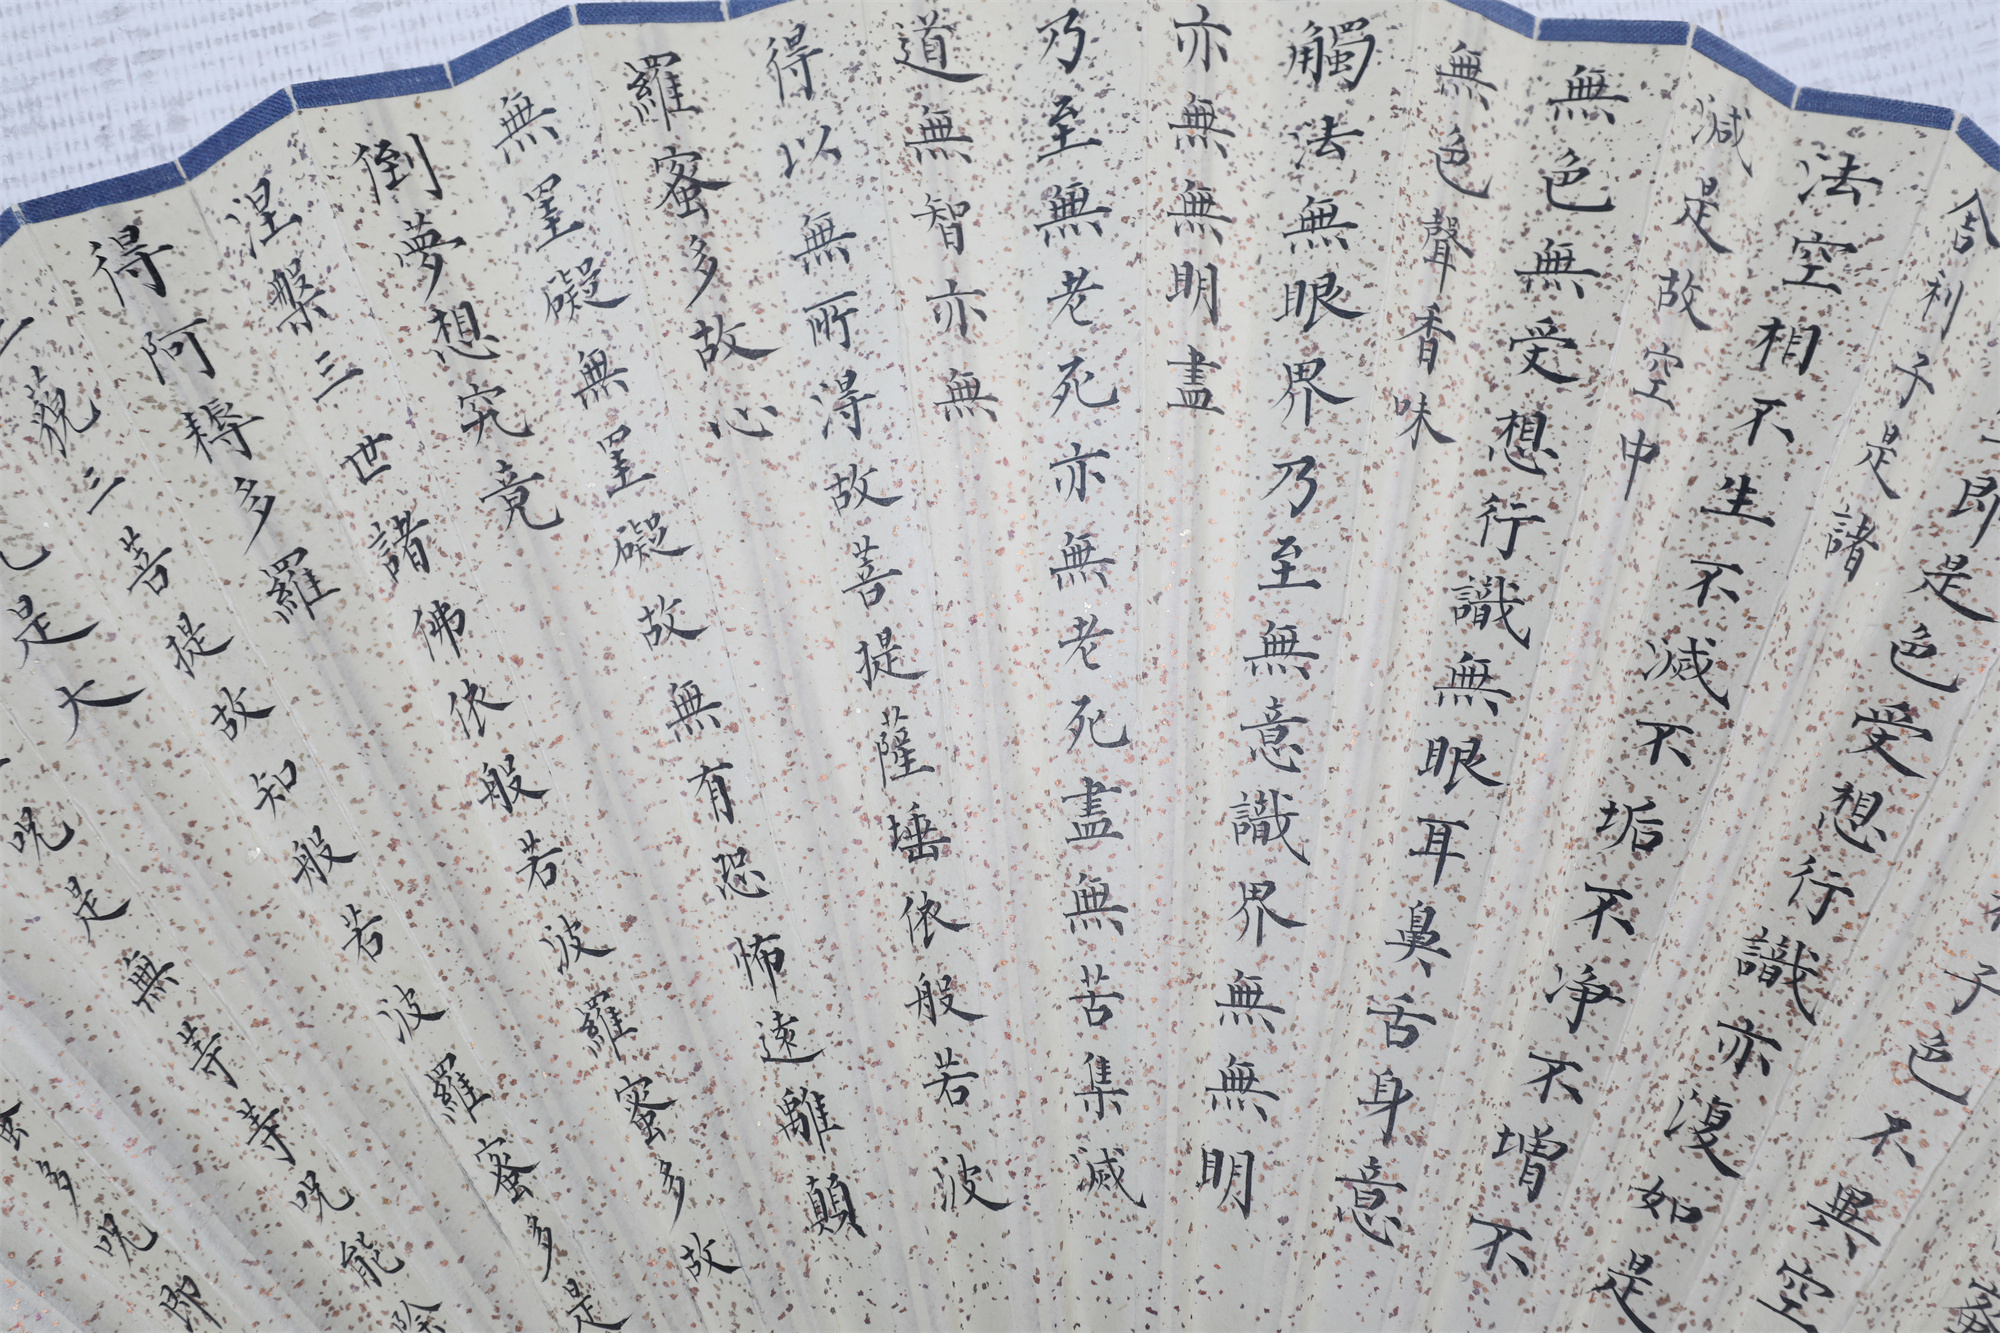 子色不異空
即是色受想行識亦復如是
舍利子是諸
法空相不生不滅不垢不净不增不
減是故空中
無色無受想行識無眼耳鼻舌身意
無色聲香味
觸法無眼界乃至無意識界無無明
亦無無明盡
乃至無老死亦無老死盡無苦集滅
道無智亦無
得以無所得故菩提薩埵依般若波
羅蜜多故心
無罣礙無罣礙故無有恐怖遠離顛
倒夢想究竟
涅槃三世諸佛依般若波羅蜜多故
得阿耨多羅
三藐三菩提故知般若波羅蜜多是
是大
呪是無等等呪能除
蜜多呪即